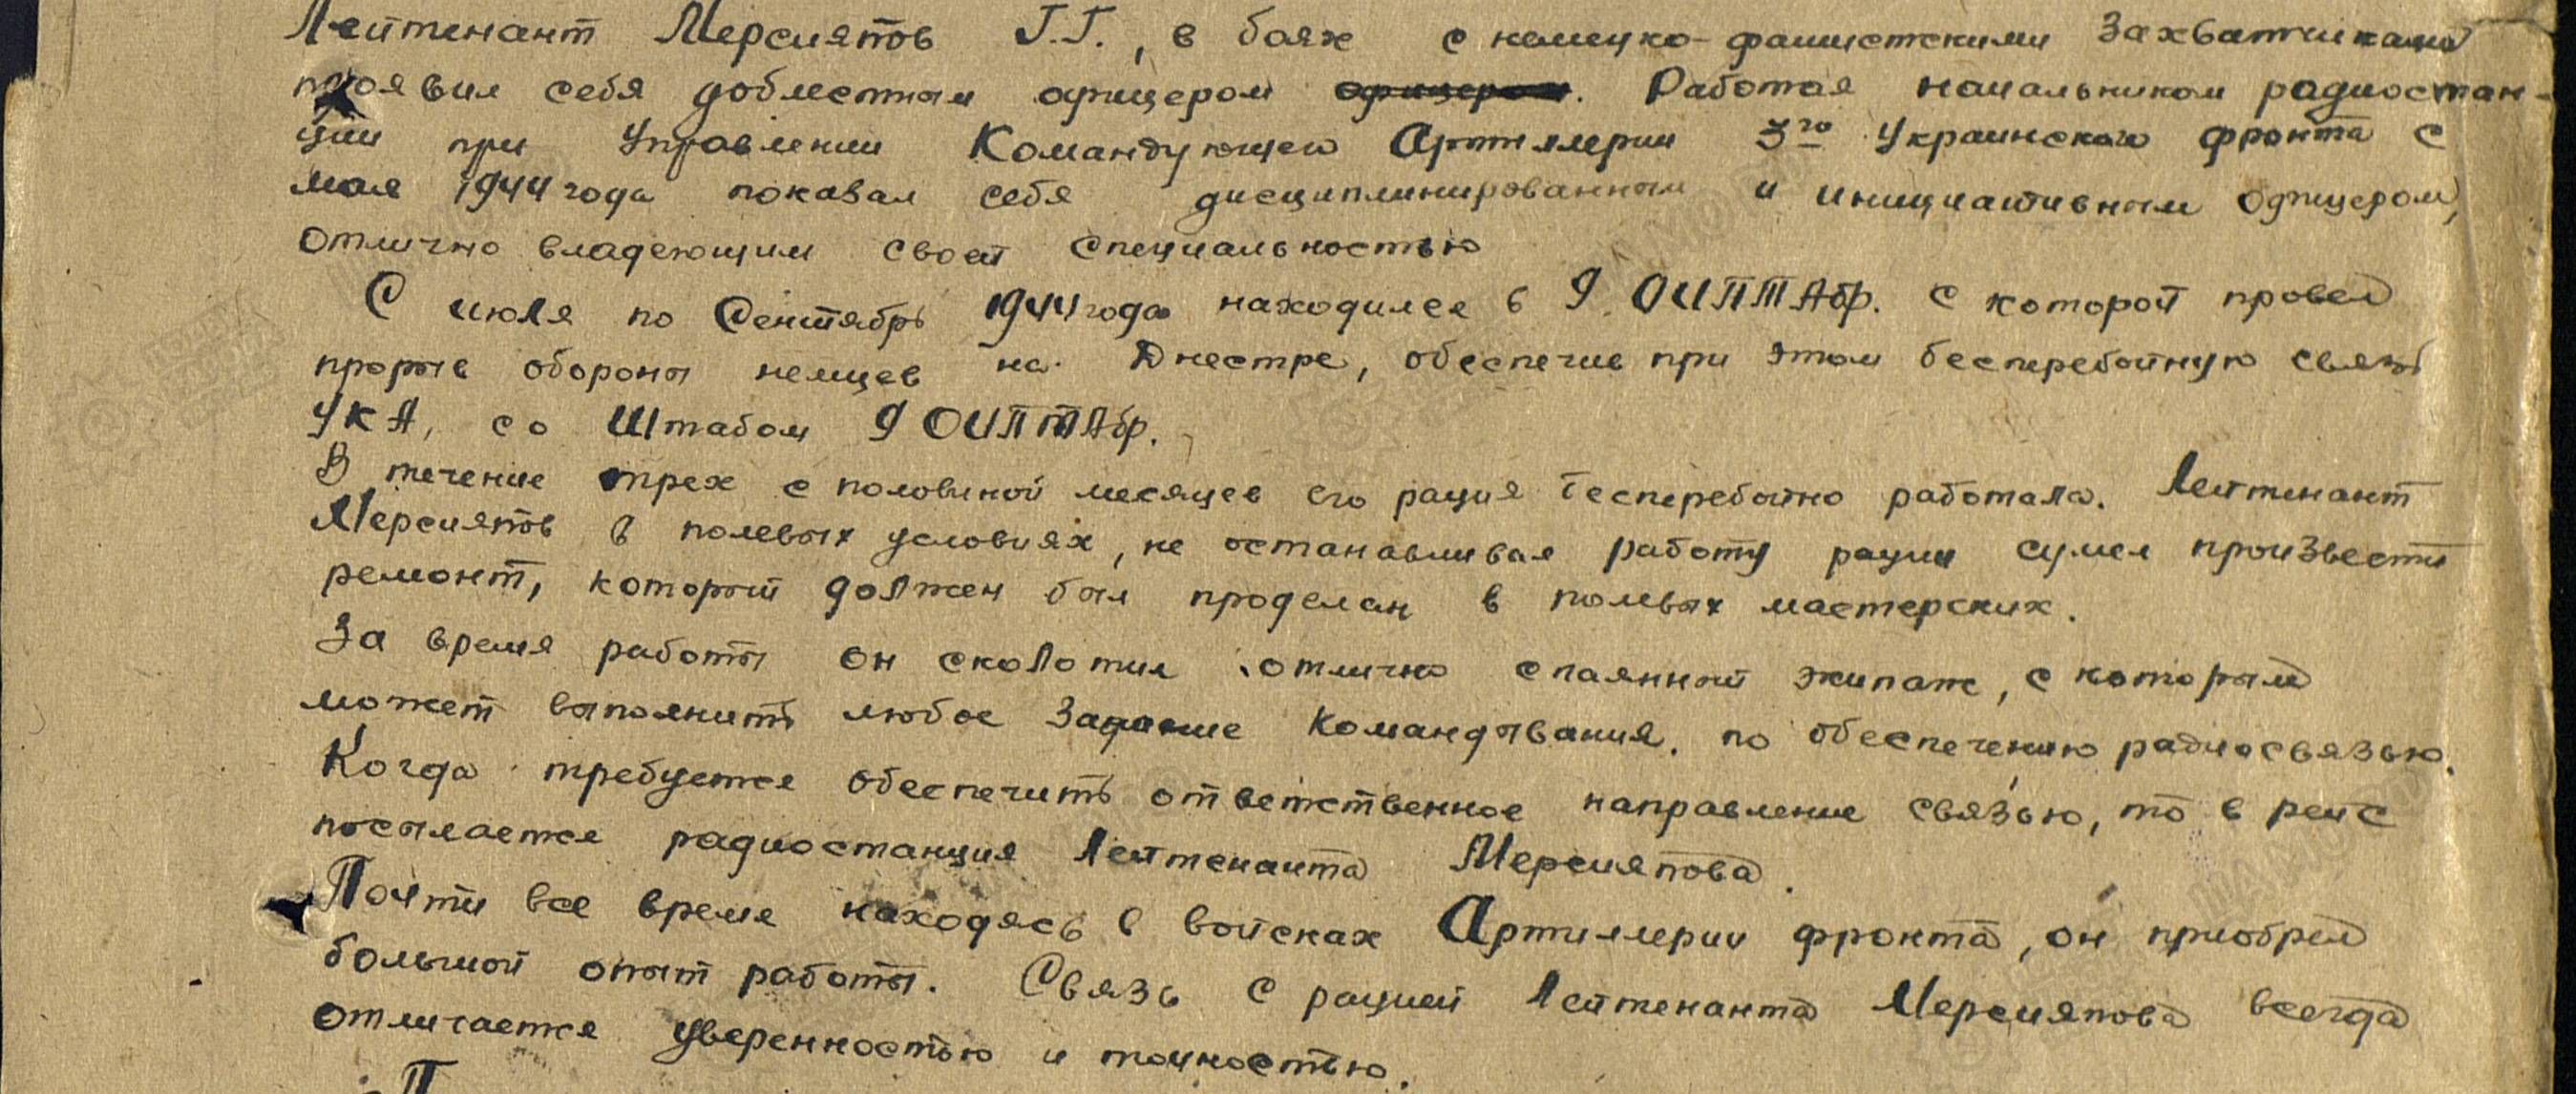 Лейтенант Мерсиятов Г.Г., в боях с немецко-фашистскими захватчиками
проявил себя доблестным офицером офицером. Работая начальником радиостан-
ции при Управлении Командующего Артиллерии 3го Украинского фронта с
мая 1944 года показал себя дисциплинированным и инициативным офицером,
отлично владеющим своей специальностью
С июля по Сентябрь 1944 года находился в 9 ОИПТАбр. с которой провел
прорыв обороны немцев на Днестре, обеспечив при этом бесперебойную связь
УКА, со Штабом 9 ОИПТАбр.
В течение трех с половиной месяцев его рация бесперебойно работала. Лейтенант
Мерсиятов в полевых условиях, не останавливая работу рации сумел произвести
ремонт, который должен был проделан в полевых мастерских.
За время работы он сколотил отлично спаянный экипаж, с которым
может выполнить любое задание командывания. по обеспечению радиосвязью.
Когда требуется обеспечить ответственное направление связью, то в рейс
посылается радиостанция Лейтенанта Мерсиятова.
Почти все время находясь в войсках Артиллерии фронта, он приобрел
большой опыт работы. Связь с рацией Лейтенанта Мерсиятова всегда
отличается уверенностью и точностью.